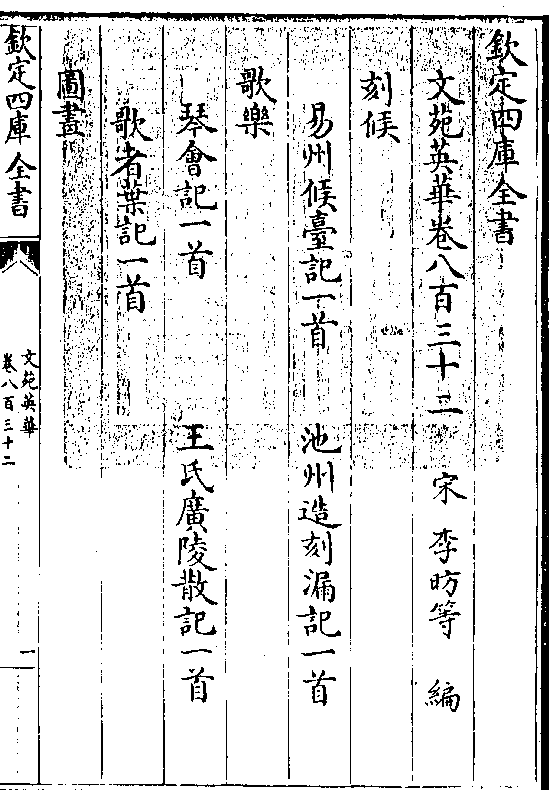 欽定四庫全書
文苑英華卷八百三十二　宋 李昉等 編
刻候
易州候臺記一首　池州造刻漏記一首
歌樂
琴會記一首　王氏廣陵散記一首
歌者葉記一首
圖畫
欽定四庫全書
文苑英華
卷八百三十二
一